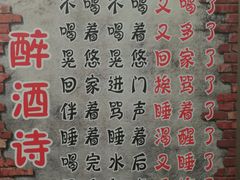 醉酒诗
不喝不喝又喝了
喝着喝着又多了
晃晃悠悠回家了
回家进门挨骂了
伴着骂声睡着了
睡着睡着渴醒了
喝完水后又睡了